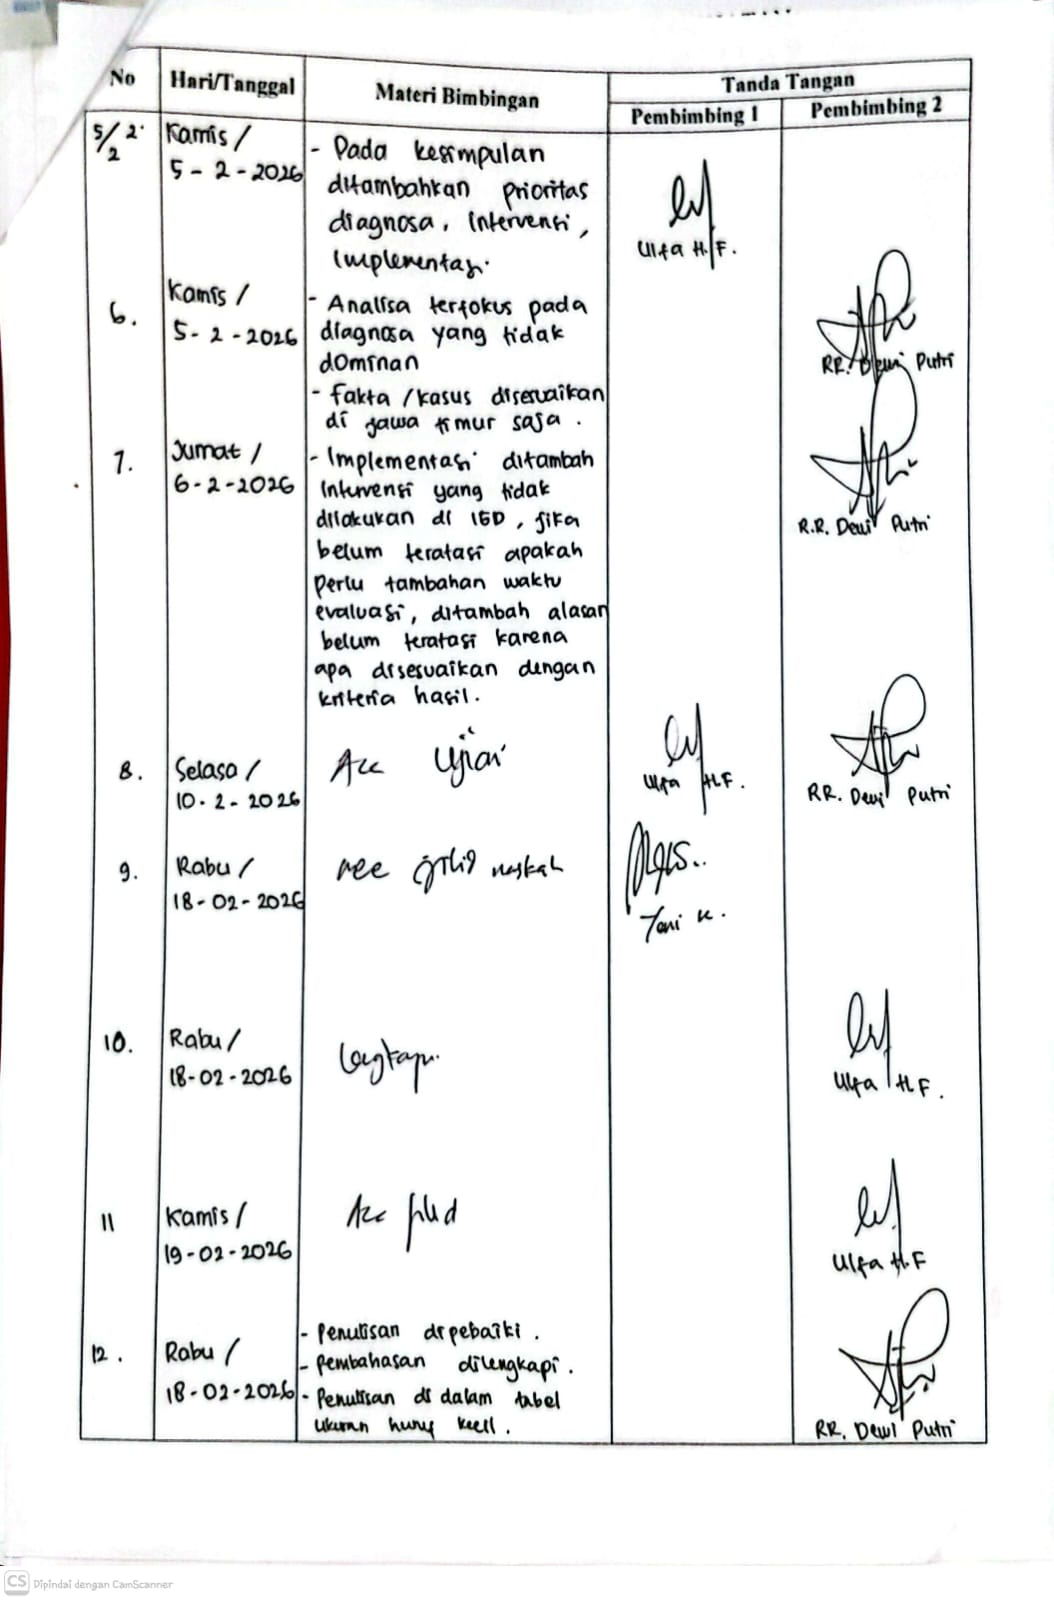 No Hari/Tanggal Materi Bimbingan Tanda Tangan
Pembimbing 1 Pembimbing 2
5/2 2. Kamis /
5 - 2 - 2026
- Pada kesimpulan
ditambahkan prioritas
diagnosa, intervensi,
implementasi.
Ulfa H.F.
6. Kamis /
5 - 2 - 2026
- Analisa terfokus pada
diagnosa yang tidak
dominan
- Fakta / kasus disesuaikan
di jawa timur saja.
RR. Dewi Putri
7. Jumat /
6 - 2 - 2026
- Implementasi ditambah
Intervensi yang tidak
dilakukan di IGD, jika
belum teratasi apakah
perlu tambahan waktu
evaluasi, ditambah alasan
belum teratasi karena
apa disesuaikan dengan
kriteria hasil.
R.R. Dewi Putri
8. Selasa /
10 - 2 - 2026
Acc Ujian
Ulfa H.F.
RR. Dewi Putri
9. Rabu /
18 - 02 - 2026
naskah
Toni K.
10. Rabu /
18 - 02 - 2026
Lengkapi
Ulfa H.F.
11 Kamis /
19 - 02 - 2026
Acc jilid
Ulfa H.F
12. Rabu /
18 - 02 - 2026
- Penulisan dipebaiki.
- Pembahasan dilengkapi.
- Penulisan di dalam tabel
ukuran huruf kecil.
RR. Dewi Putri
CS Dipindai dengan CamScanner